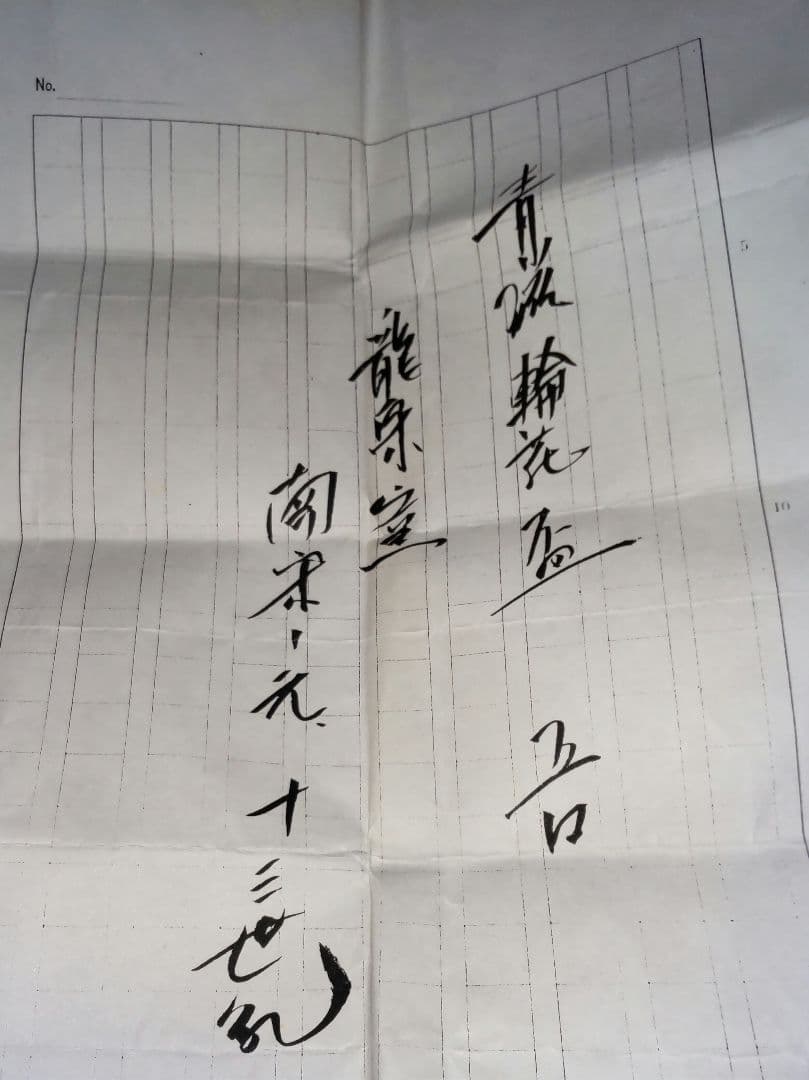 No.
5
10
青磁輪花盃 五口
龍泉窯
南宋・元 十三世紀